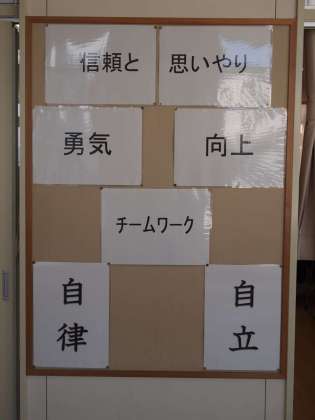 信頼と 思いやり
勇気 向上
チームワーク
自律 自立